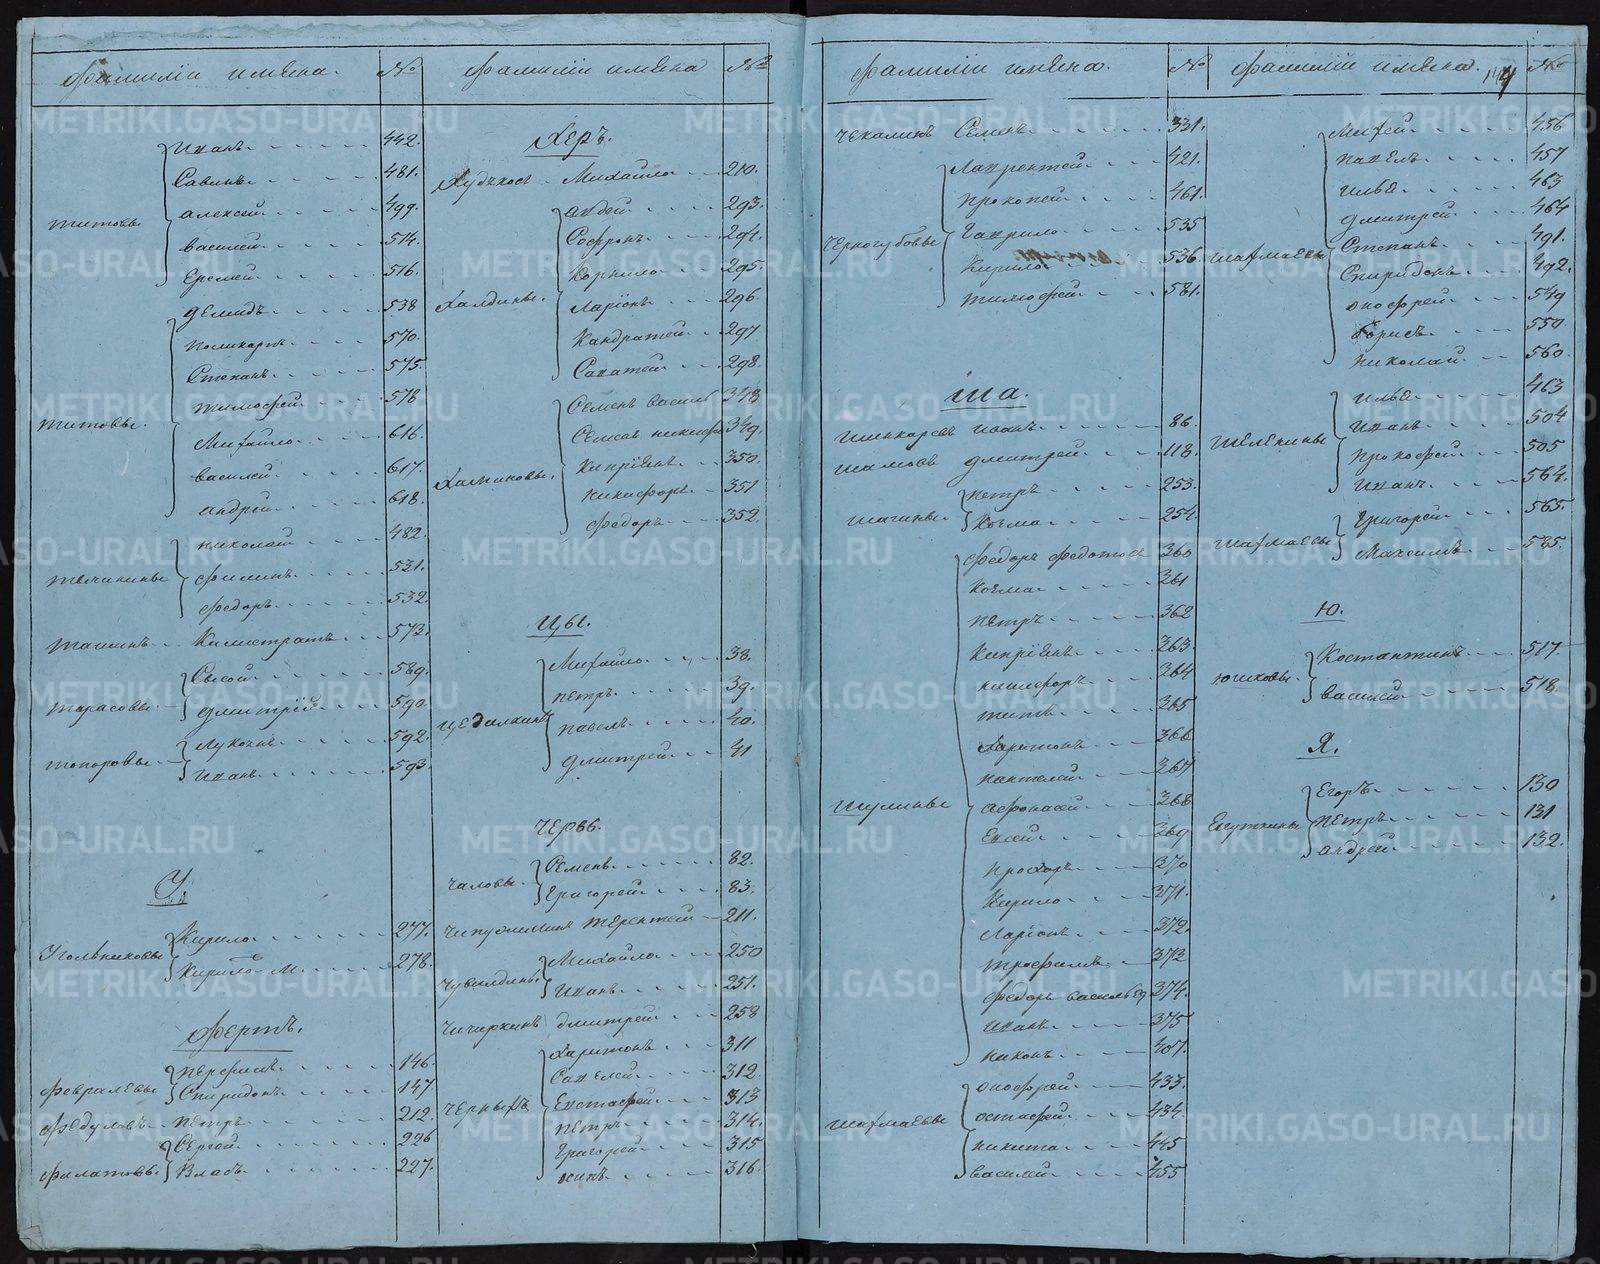 Фамиліи имяна. №
Титовы
Иванъ 442.
Савинъ 481.
Алексей 499.
Василей 514.
Еремей 516.
Титовы.
Демидъ 538
Поликарпъ 570.
Степанъ 575.
Тимофей 578
Михайло 616.
Василей 617.
Андрей 618.
Николай 482.
Филипъ 521.
Федоръ 532.
Калистратъ 573.
Тарасовы
Сысой 589.
Дмитрей 590.
Топоровы
Иванъ 593.
У.
Угольниковы
Кирило 277.
Кирило М. 278.
Фертъ.
Февралевы
Перфилъ 146.
Спиридонъ 147.
Федуловъ Петръ 212.
Филатовы
Сергей 226
Власъ 227.
Фамиліи имяна №
Херъ.
Михайло 210.
Халдины.
Авдей 293.
Софронъ 294.
Корнило 295.
Ларіонъ 296.
Кандратей 297
Саватей 298.
Семенъ Василь 348
Семенъ Никифо 349.
Кипріянъ 350.
Никифоръ 351
Федоръ 352.
Цы.
Михайло 38.
Петръ 39.
Павелъ 40.
Дмитрей 41
Червь.
Чаловы
Семенъ 82.
Григорей 83.
Терентей 211.
Чувилдины
Михайло 250
Иванъ 251.
Чичиркинъ Дмитрей 258
Черныхъ
Харитонъ 311
Савелей 312.
Евстафей 313
Петръ 314.
Григорей 315
Осипъ 316.
Фамиліи имяна. №
Чекалинъ Семенъ 331.
Черногубовы
Лаврентей 421.
Прокопей 461.
Гаврило 535
Кирило 536.
Тимофей 581.
Ша.
Шинкаревъ Иванъ 86.
Шамовъ Дмитрей 118.
Шагины
Петръ 253.
Козма 254.
Шулины
Федоръ Федотов 360
Козма 361
Петръ 362
Кипріянъ 363.
Никифоръ 364
Титъ 365
Харитонъ 366
Пантелей 367
Афонасей 368
Елисей 369
Прохоръ 370
Кирило 371.
Ларіонъ 372.
Трофимъ 373
Федоръ Васильев 374.
Иванъ 375
Никонъ 407.
Шахмаевы
Онофрей 433.
Остафей 434.
Никита 445
Василей 455
Фамиліи имяна. №
Шахмаевы
Михей 456
Павелъ 457
Илья 463
Дмитрей 464
Степанъ 491.
Спиридонъ 492.
Онофрей 549
Борисъ 550.
Николай 560.
Шелепины
Илья 463
Иванъ 504
Прокофей 505
Иванъ 564.
Шахмаевы
Григорей 565.
Максимъ 585.
Ю.
Юшковы
Костантинъ 517.
Василей 518.
Я.
Егоръ 130
Петръ 131
Андрей 132.
METRIKI.GASO-URAL.RU